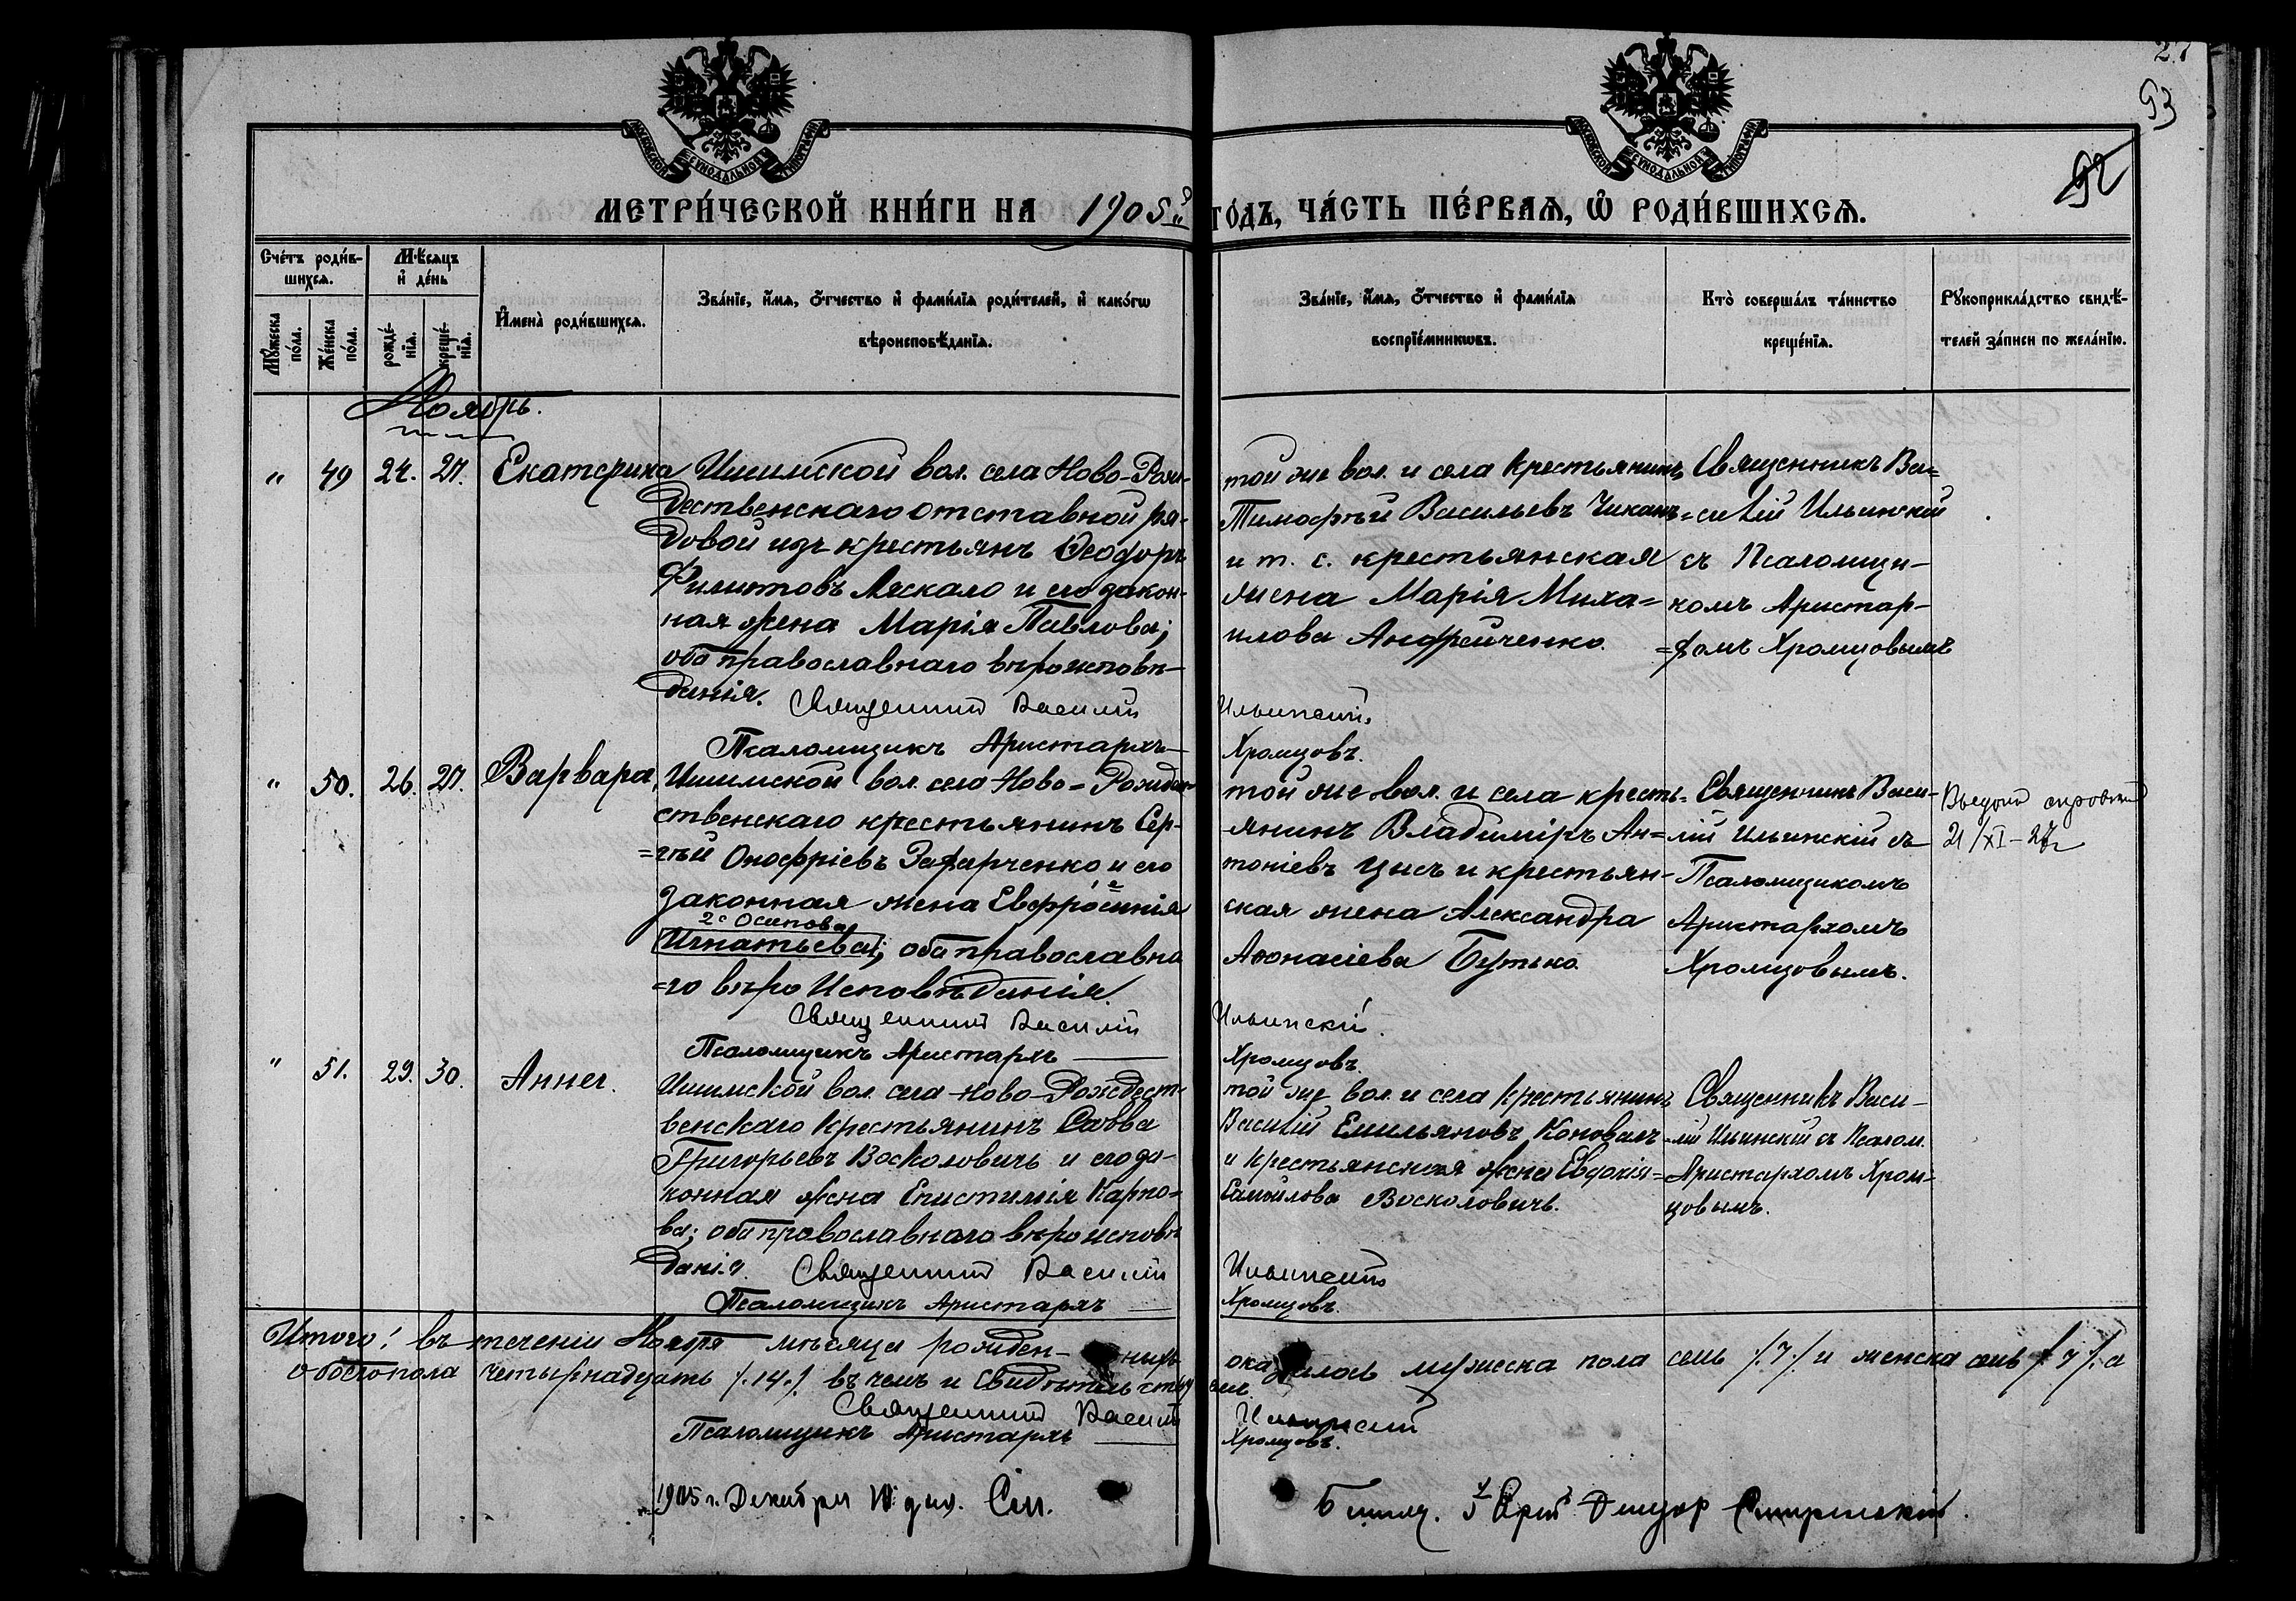 27
93
92
МОСКОВСКОЙ СУНОДАЛЬНОЙ ТИПОГРАФІИ
МОСКОВСКОЙ СУНОДАЛЬНОЙ ТИПОГРАФІИ
МЕТРИ́ЧЕСКОЙ КНИ́ГИ НА 1905й ГО́ДЪ, ЧА́СТЬ ПЕ́РВАѦ, Ѡ҆ РОДИ́ВШИХСѦ.
Сче́тъ роди́в-
шихсѧ.
Мꙋ́жеска
по́ла.
Же́нска
по́ла.
Мѣ́сѧцъ
и҆ де́нь
рожде́-
нїѧ.
креще́-
нїѧ.
И҆мена̀ роди́вшихсѧ.
Зва́нїе, и҆́мѧ, ѻ҆́тчество и҆ фами́лїѧ роди́телей, и҆ како́гѡ
вѣроисповѣ́данїѧ.
Зва́нїе, и҆́мѧ, ѻ҆́тчество и҆ фами́лїѧ
воспрїе́мникѡвъ.
Кто̀ соверша́лъ та́инство
креще́нїѧ.
Рꙋкоприкла́дство свидѣ́-
телей за́писи по жела́нїю.
Ноябрь.
" 49 24. 27. Екатерина
Ишимской вол. села Ново-Рож-
дественскаго отставной ря-
довой изъ крестьянъ Ѳеодоръ
Филиповъ Ласкало и его закон-
ная жена Марія Павлова;
оба православнаго вѣроисповѣ-
данія. Священникъ Василій Ильинскій.
Псаломщикъ Аристархъ Хромцовъ.
той же вол. и села крестьянинъ
Тимофѣй Васильевъ Чиканъ
и т. с. крестьянская
жена Марія Миха=
илова Андрейченко.
Священникъ Ва=
=силій Ильинскій
съ Псаломщи-
комъ Аристар-
=хомъ Хромцовымъ
" 50. 26. 27. Варвара,
Ишимской вол. села Ново-Рожде-
ственскаго крестьянинъ Сер-
=гѣй Онофріевъ Захарченко и его
законная жена Евфросинія
2е Осипова
Игнатьева; оба православна
=го вѣро Исповѣданія.
Священникъ Василій Ильинскій.
Псаломщикъ Аристархъ Хромцовъ.
той же вол. и села кресть=
янинъ Владиміръ Ан=
тоніевъ Цысь и крестьян-
ская жена Александра
Афонасіева Бутько.
Священникъ Васи-
лій Ильинскій съ
Псаломщикомъ
Аристархомъ
Хромцовымъ.
21/XI-27г
" 51. 29. 30. Анна.
Ишимской вол. села Ново-Рождест-
венскаго крестьянинъ Савва
Григорьевъ Восколовичъ и его за-
конная жена Епистимія Карпо=
ва; оба православнаго вѣроисповѣ
данія. Священникъ Василій Ильинскій
Псаломщикъ Аристархъ Хромцовъ.
той же вол. и села крестьянинъ
Василій Емильяновъ Коновалъ
и крестьянская жена Евдокія
Самойлова Восколовичъ.
Священникъ Васи-
=лій Ильинскій съ Псалом.
Аристархомъ Хром-
цовымъ.
Итого: въ теченіи Ноября мѣсяца рожден- ныхъ оказалось мужеска пола семь /.7./ и женска семь /.7./. а
обоего пола четырнадцать /.14./. въ чемъ и свидѣтельству емъ.
Священникъ Василій Ильинскій
Псаломщикъ Аристархъ Хромцовъ.
1905 г. Декабря 10 дня.